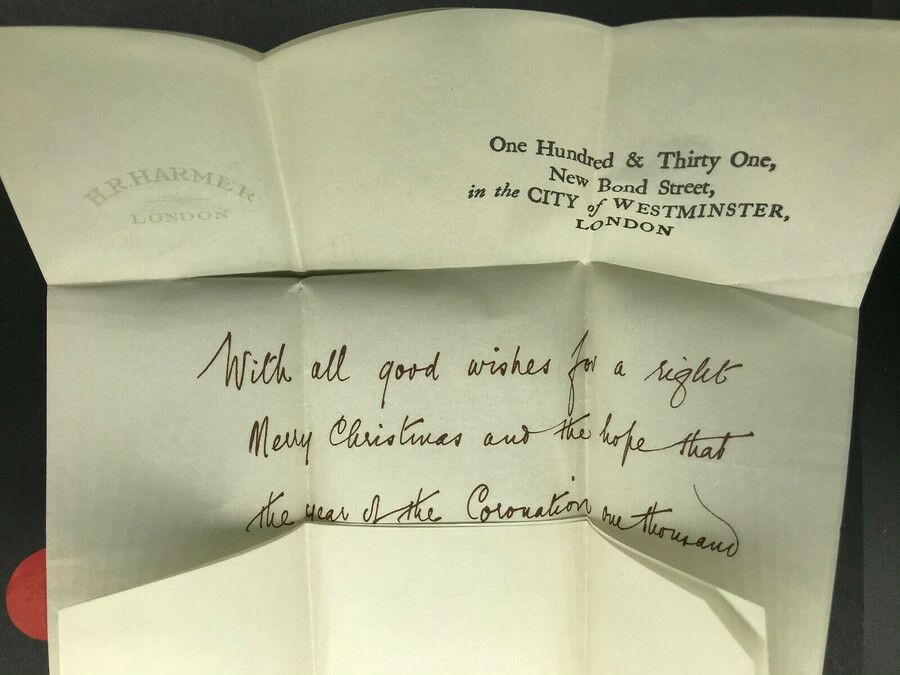 H.R. HARMER
LONDON
One Hundred & Thirty One,
New Bond Street,
in the CITY of WESTMINSTER,
LONDON
With all good wishes for a right
Merry Christmas and the hope that
the year of the Coronation one thousand